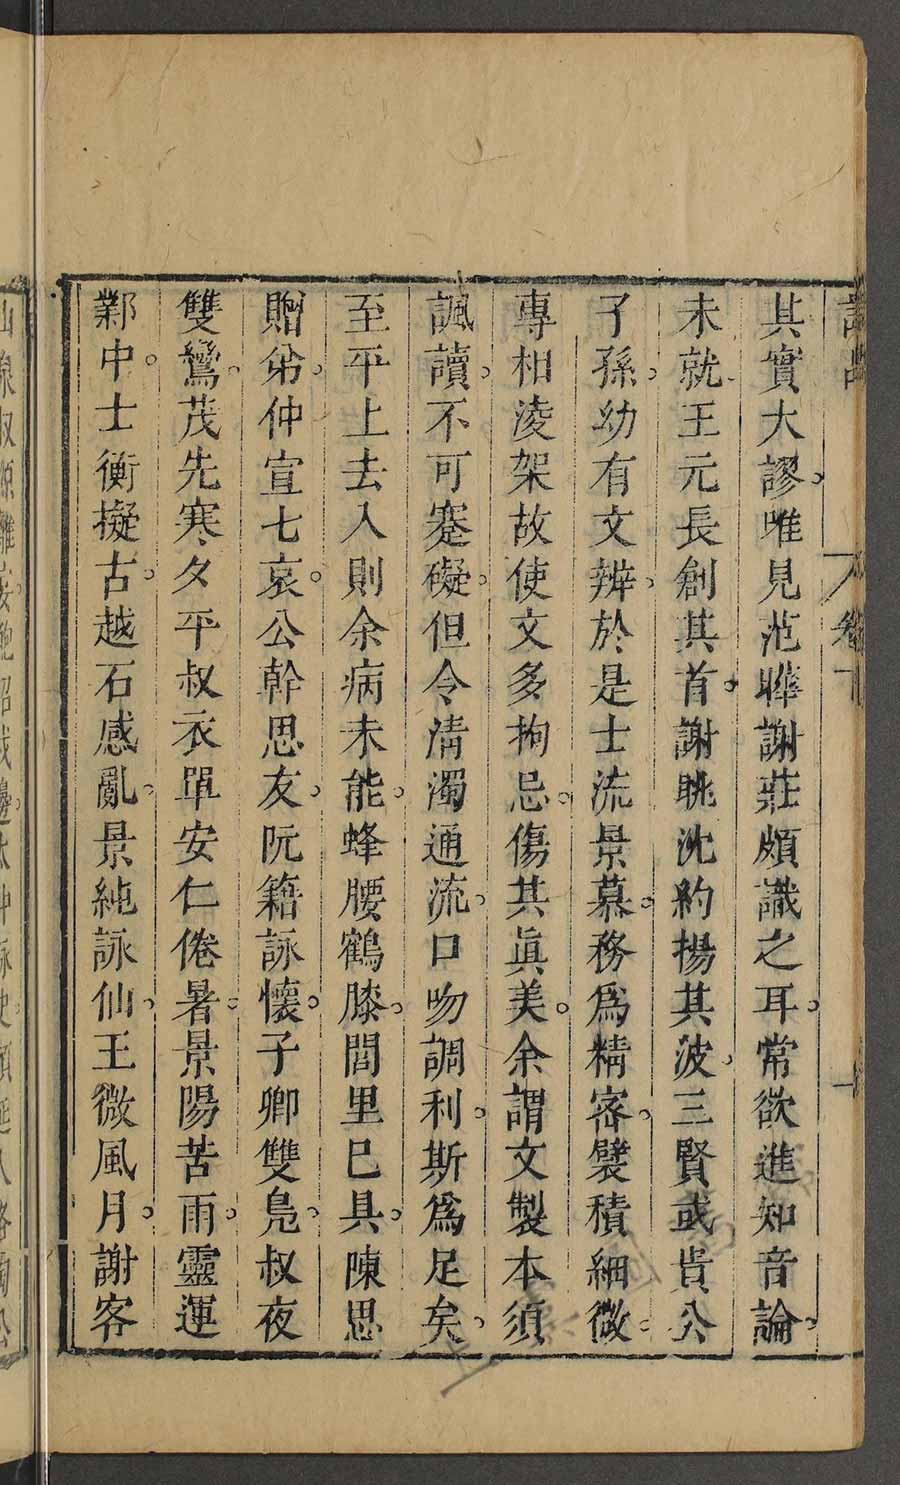 其實大謬。唯見范曄謝莊頗識之耳。常欲進知音論。
未就。王元長創其首。謝眺沈約揚其波。三賢或貴公
子孫。幼有文辨。於是士流景慕。務爲精密。襞積細微。
專相淩架故使文多拘忌。傷其眞美。余謂文製本須
諷讀。不可蹇礙。但令清濁通流。口吻調利。斯爲足矣。
至平上去入則余病未能。蜂腰鶴膝。閭里巳具。陳思
贈弟。仲宣七哀。公幹思友。阮籍詠懷。子卿雙鳧。叔夜
雙鸞。茂先寒夕平叔衣單安仁倦暑。景陽苦雨。靈運
鄴中。士衡擬古。越石感亂。景純詠仙。王微風月。謝客